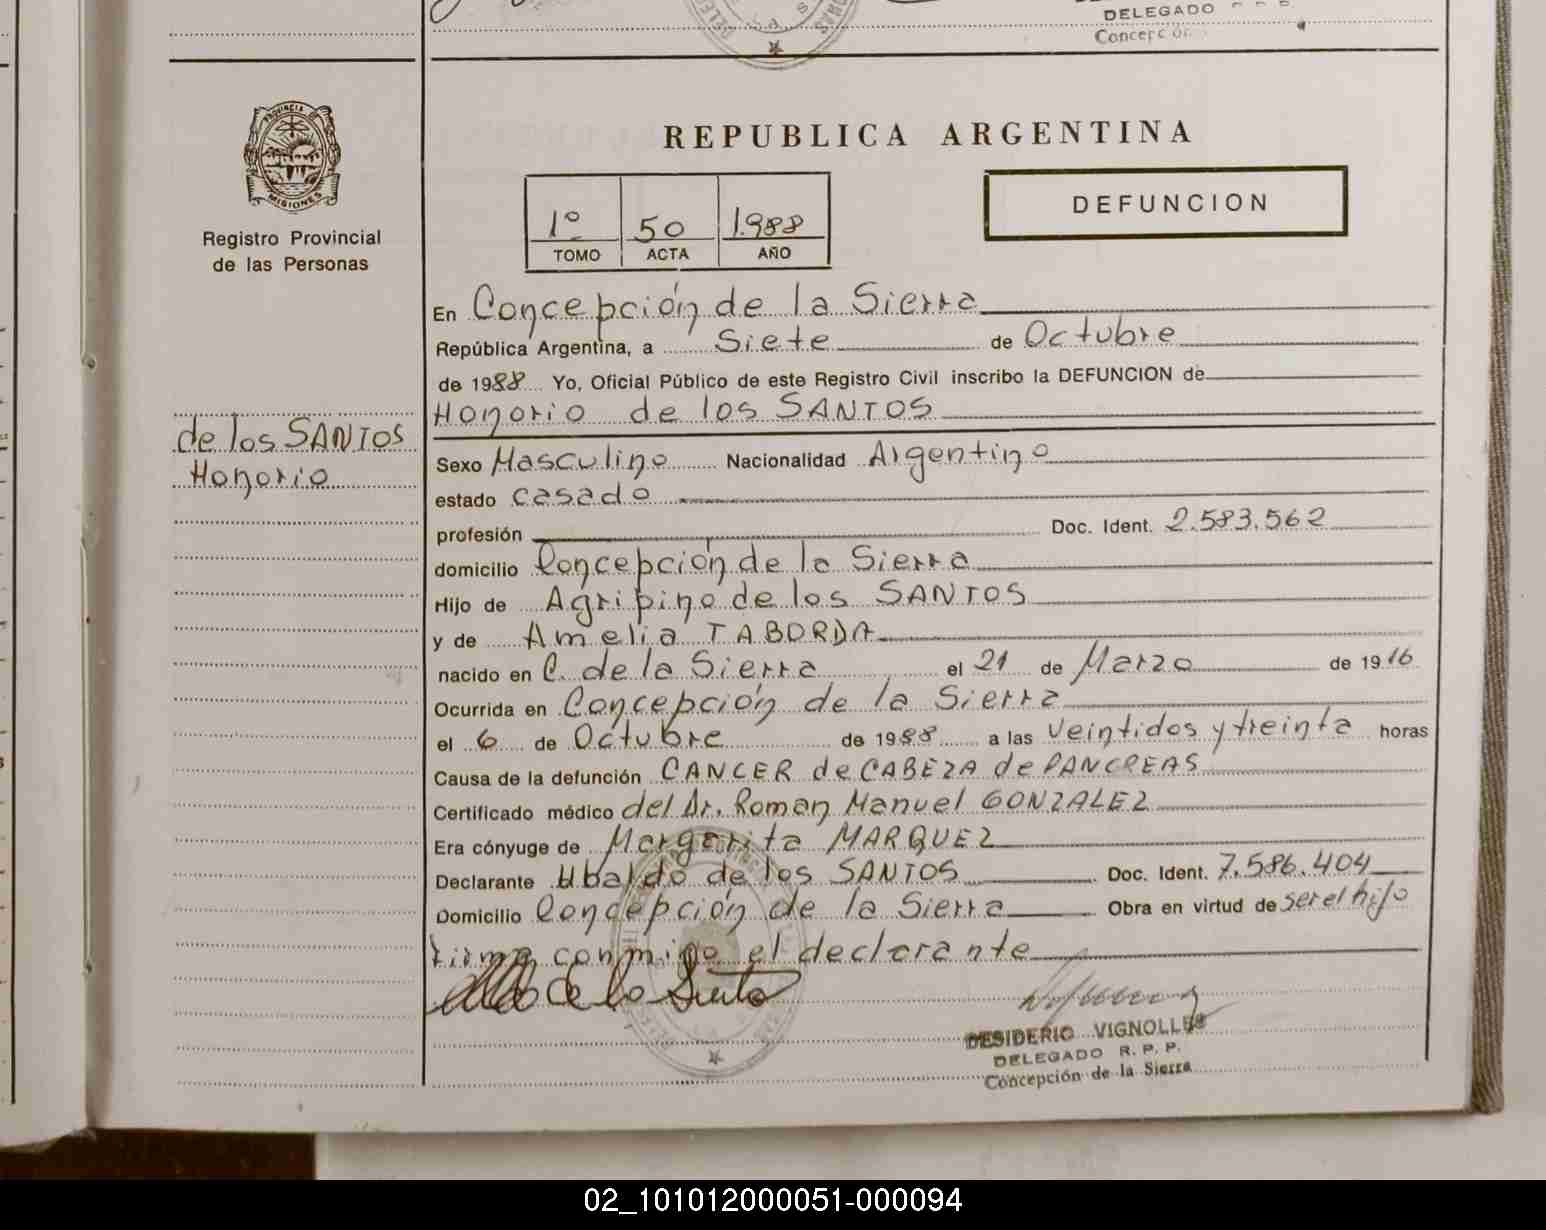 DELEGADO
Concepción
PROVINCIA DE
MISIONES
Registro Provincial
de las Personas
de los SANTOS
Honorio
REPUBLICA ARGENTINA
DEFUNCION
1º 50 1.988
TOMO ACTA AÑO
En Concepción de la Sierra
República Argentina, a Siete de Octubre
de 1988 Yo, Oficial Público de este Registro Civil inscribo la DEFUNCION de
Honorio de los SANTOS
Sexo Masculino Nacionalidad Argentino
estado casado
profesión Doc. Ident. 2.583.562
domicilio Concepción de la Sierra
Hijo de Agripino de los SANTOS
y de Amelia TABORDA
nacido en C. de la Sierra el 21 de Marzo de 1916
Ocurrida en Concepción de la Sierra
el 6 de Octubre de 1988 a las veintidos y treinta horas
Causa de la defunción CANCER de CABEZA de PANCREAS
Certificado médico del Dr. Roman Manuel GONZALEZ
Era cónyuge de Margarita MARQUEZ
Declarante Ubaldo de los SANTOS Doc. Ident. 7.586.404
Domicilio Concepción de la Sierra Obra en virtud de ser el hijo
firma conmigo el declarante
DESIDERIO VIGNOLLES
DELEGADO R. P. P.
Concepción de la Sierra
02_101012000051-000094